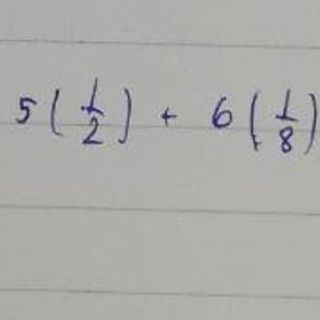 5 (1/2) + 6 (1/8)